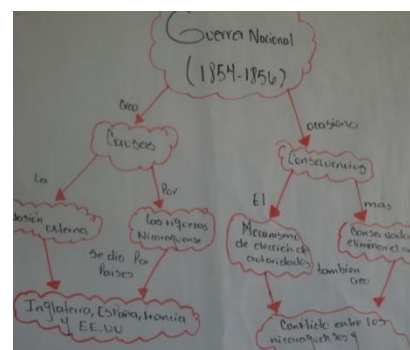 Guerra Nacional
(1854-1856)
Creo
ocasiono
Causas
Consecuencias
La
Por
El
más
externa
Las riquezas
Nicaraguense
Mecanismo
de elección de
autoridades
Se dio Por
Paises
tambien
creo
Inglaterra, España, Francia
y EE.UU
Conflicto entre los
nicaraguenses y